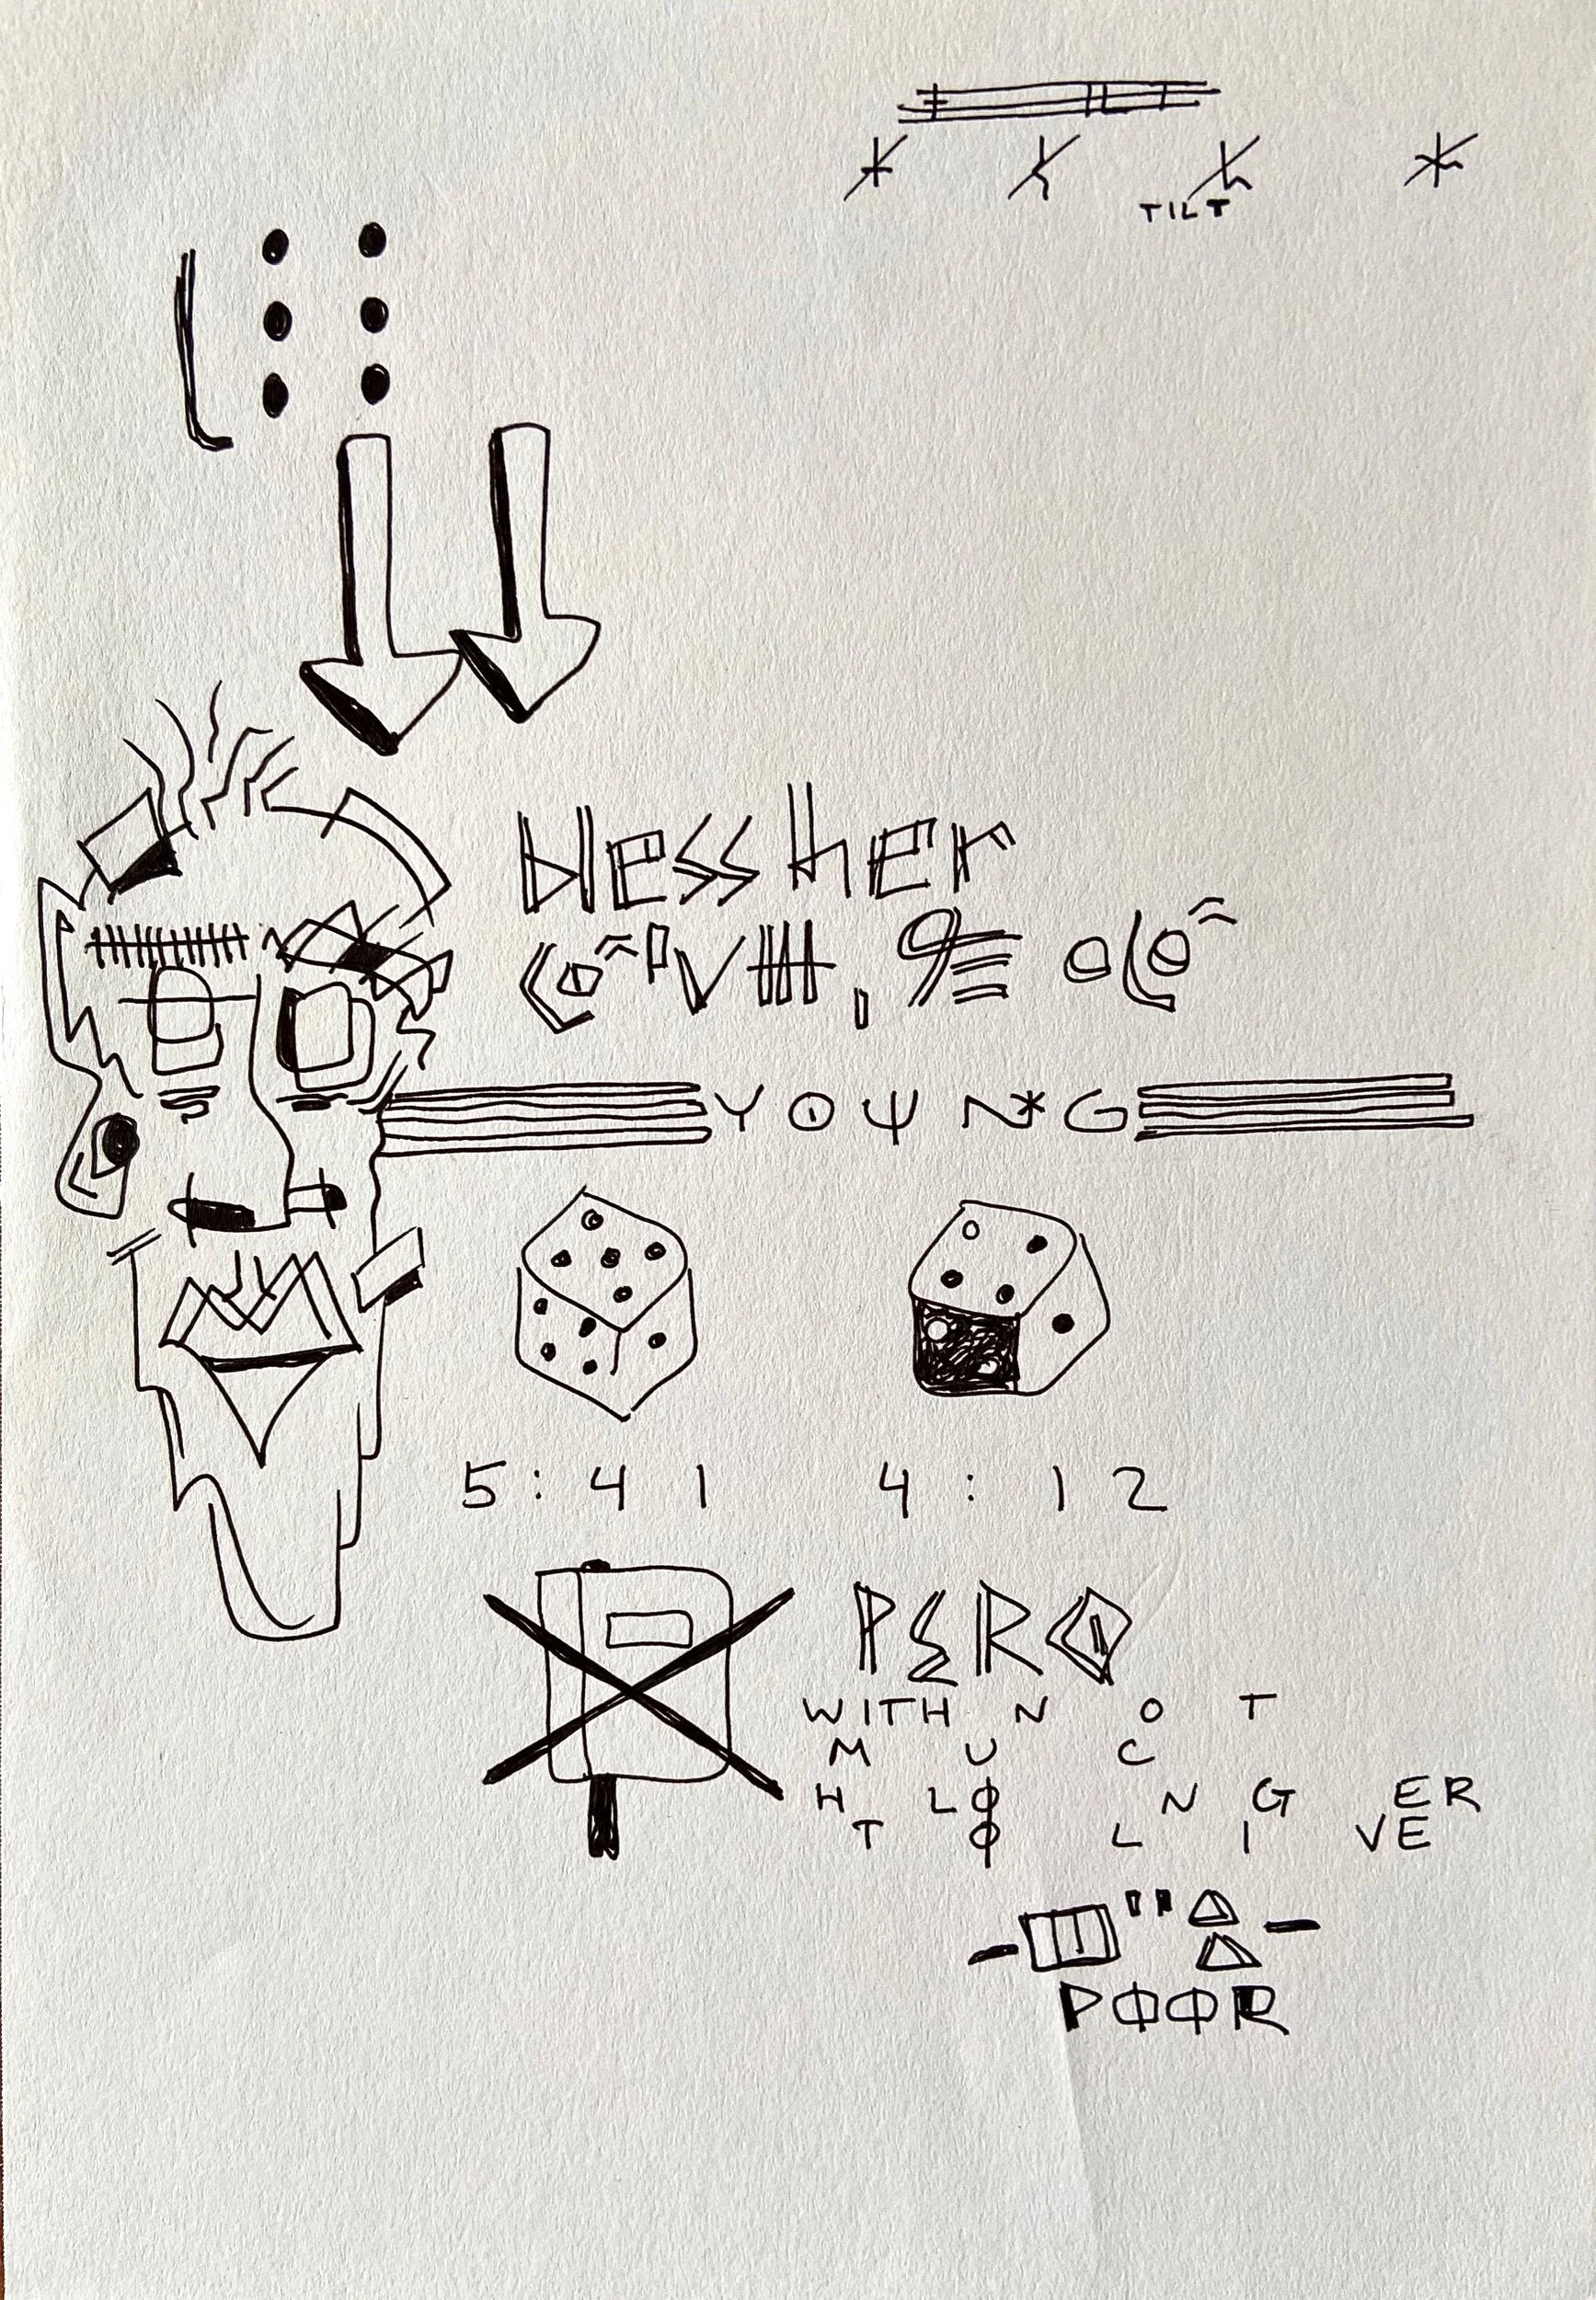 TILT
bless her
YOUN*G
5:41 4:12
PERO
WITH N O T
M U C
H LØ N G ER
T Ø L I VE
PØØR